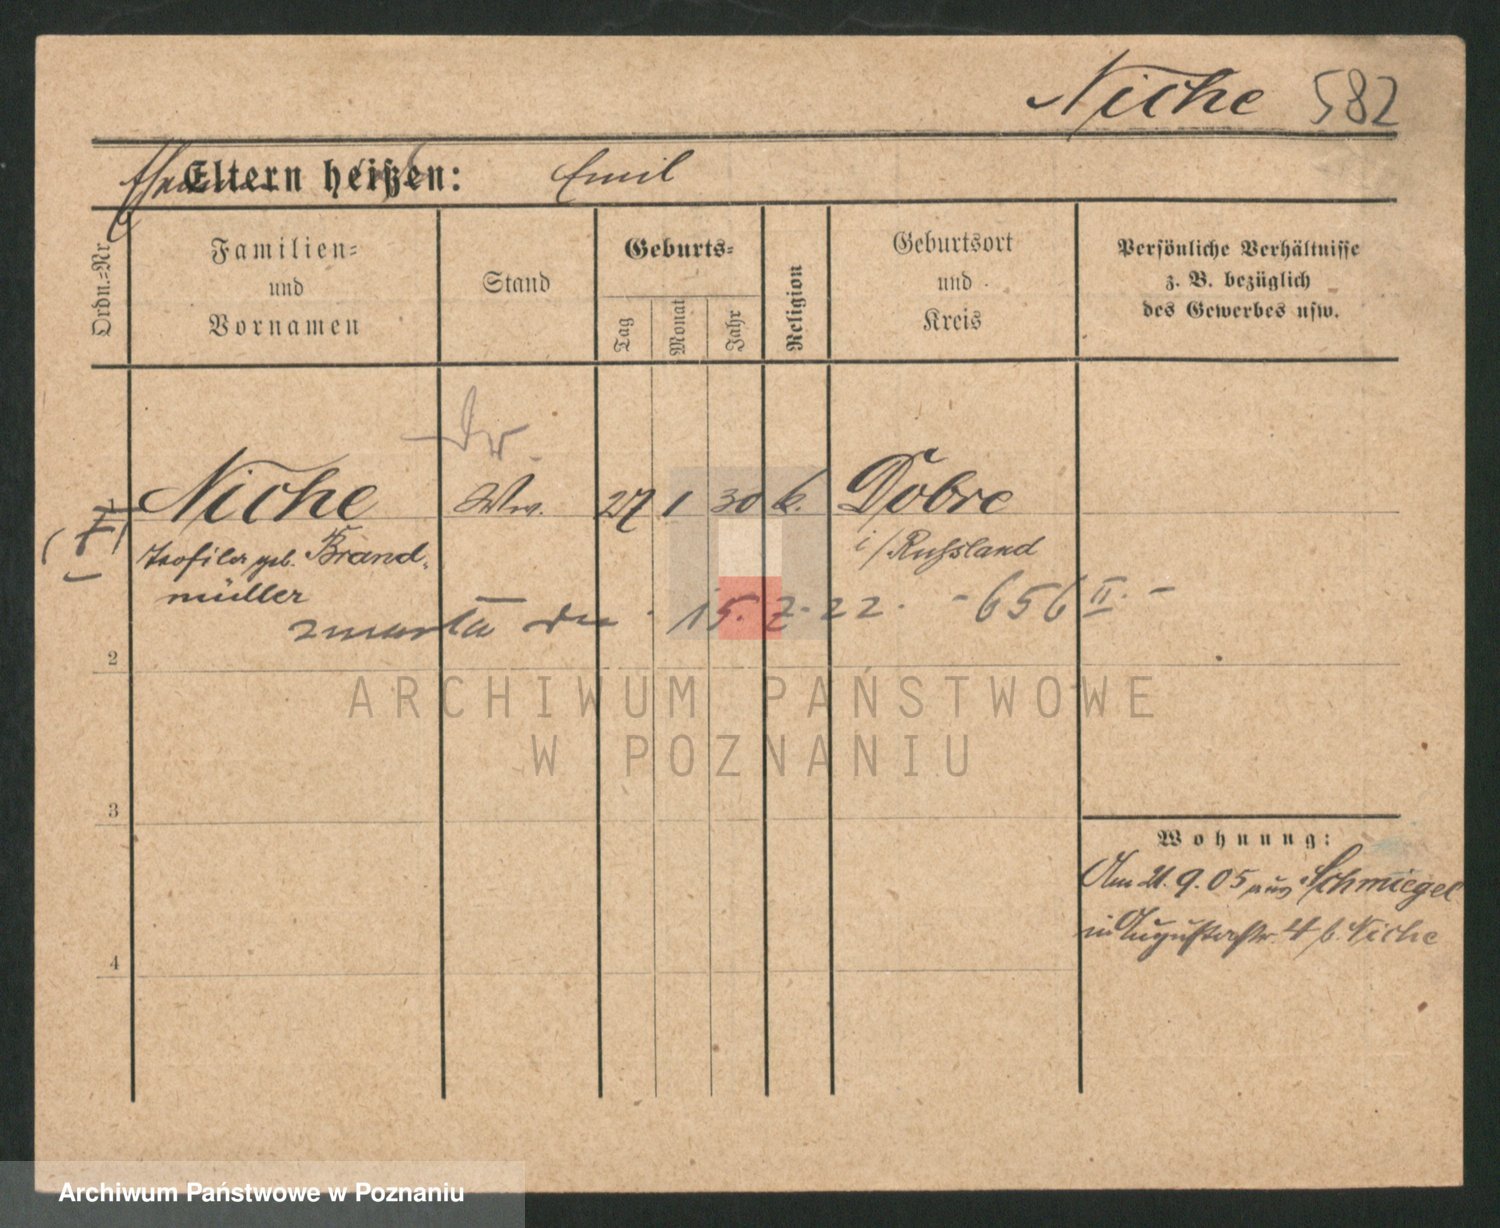 Niche 582
Eltern heißen: Emil
Ordn.-Nr
Familien-
und
Vornamen
Stand
Geburts-
Tag
Monat
Jahr
Religion
Geburtsort
und
Kreis
Persönliche Verhältnisse
z. B. bezüglich
des Gewerbes usw.
Dr.
1 Niche Ww. 27 1 30 k. Dobre
Teofila geb. Brand-
i/Russland
müller
zmarła dn. 15. 7. 22. - 656 II. -
2
ARCHIWUM PAŃSTWOWE
W POZNANIU
3
Wohnung:
Am 21. 9. 05 aus Schmiegel
in Augustastr. 4 b. Niche
4
Archiwum Państwowe w Poznaniu